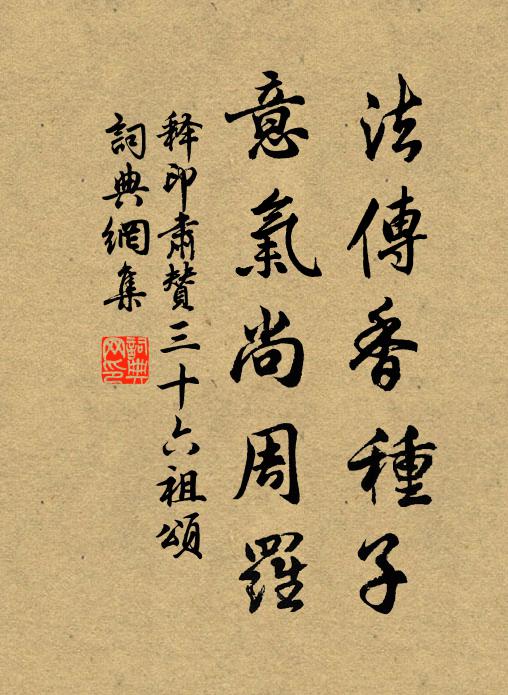 法傳香種子
意氣尚周羅
釋印肅贊三十六祖頌
詞典網集
詞典網印